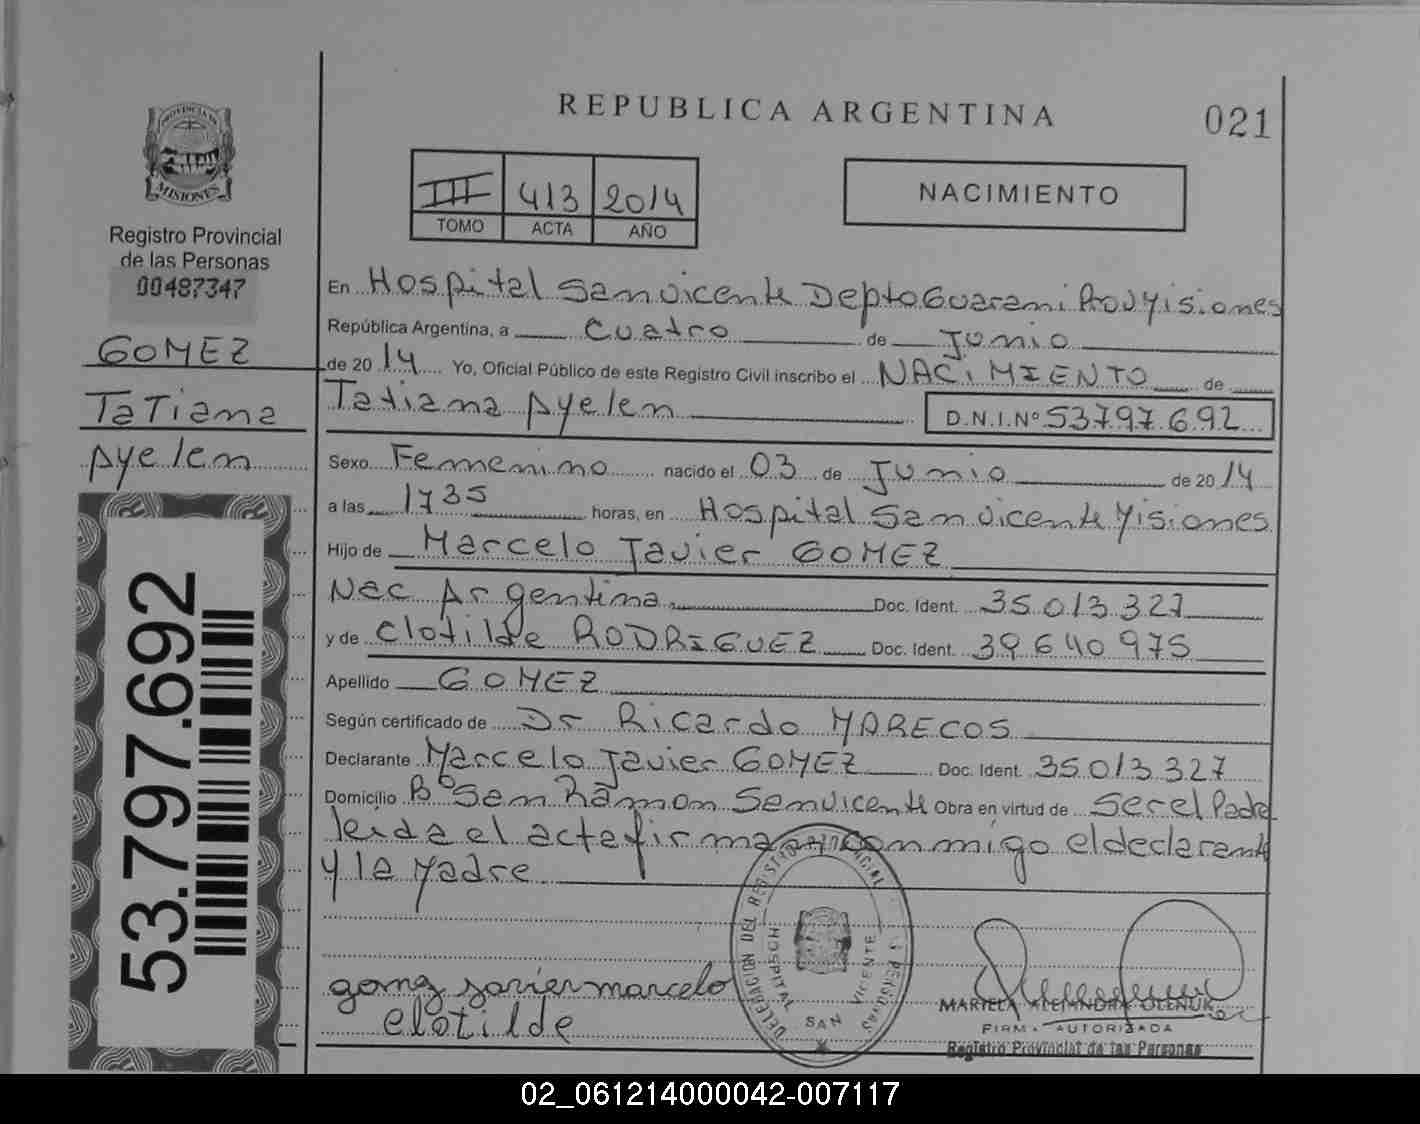 REPUBLICA ARGENTINA
021
PROVINCIA DE
MISIONES
Registro Provincial
de las Personas
00487347
III 413 2014
TOMO ACTA AÑO
NACIMIENTO
GOMEZ
Tatiana
Ayelen
53.797.692
En Hospital San Vicente Depto Guarani Prov Misiones
República Argentina, a cuatro de Junio
de 2014 Yo, Oficial Público de este Registro Civil inscribo el NACIMIENTO de
Tatiana Ayelen D.N.I.Nº 53797692
Sexo Femenino nacido el 03 de Junio de 2014
a las 1735 horas, en Hospital San Vicente Misiones
Hijo de Marcelo Javier GOMEZ
Nac Argentina Doc. Ident. 35.013.327
y de Clotilde RODRIGUEZ Doc. Ident. 39640975
Apellido GOMEZ
Según certificado de Dr Ricardo MARECOS
Declarante Marcelo Javier GOMEZ Doc. Ident. 35.013.327
Domicilio Bº San Ramon San Vicente Obra en virtud de Ser el Padre
leida el acta firman conmigo el declarante
y la Madre
DELEGACION DEL REGISTRO PROVINCIAL PERSONAS
HOSPITAL SAN VICENTE
gomez javier marcelo
clotilde
MARIELA ALEJANDRA OLENUK
FIRMA AUTORIZADA
Registro Provincial de las Personas
02_061214000042-007117